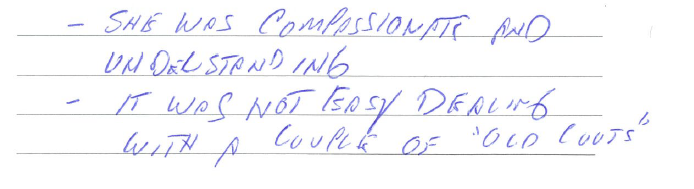 - SHE WAS COMPASSIONATE AND
UNDERSTANDING
- IT WAS NOT EASY DEALING
WITH A COUPLE OF "OLD COOTS"